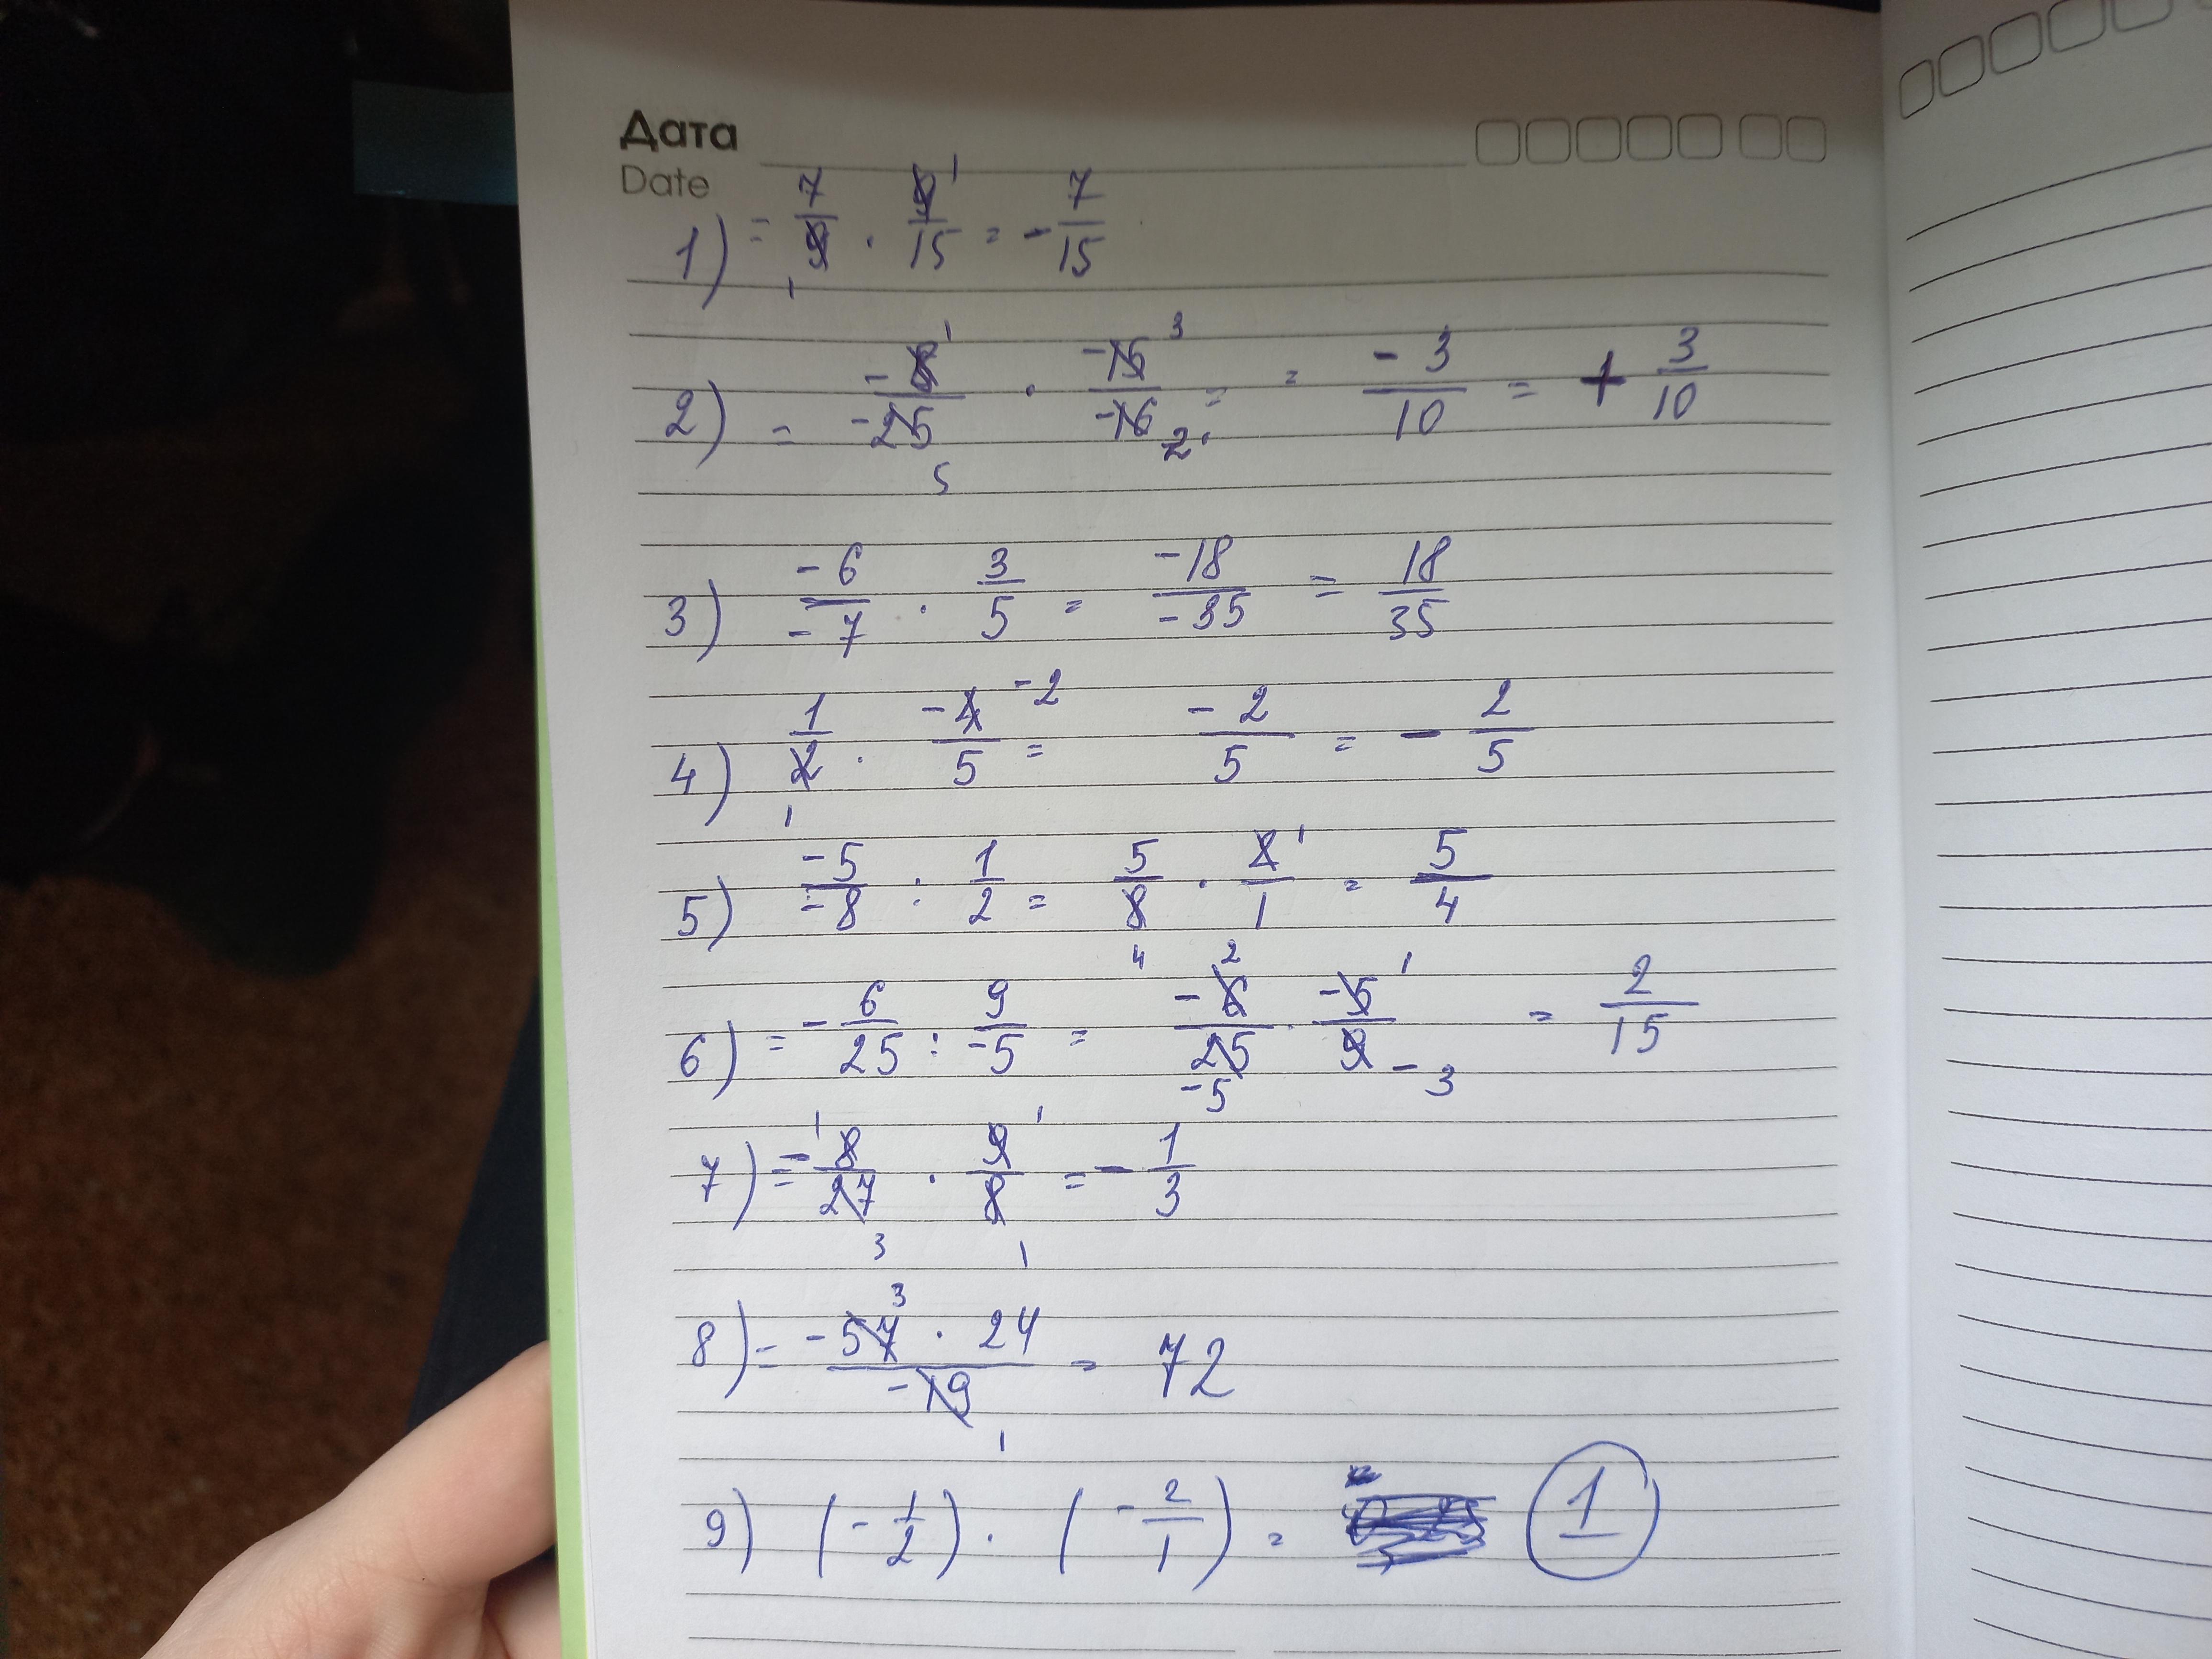 Дата
Date
1) = 7/9 · 9/15 = - 7/15
2) = -8/-25 · -15/-16 = = -3/10 = + 3/10
3) -6/-7 · 3/5 = -18/-35 = 18/35
4) 1/2 · -4/5 = -2/5 = - 2/5
5) -5/-8 : 1/2 = 5/8 · 2/1 = 5/4
6) = - 6/25 : 9/-5 = -6/25 · -5/9 = 2/15
7) = - 8/27 · 9/8 = - 1/3
8) = -57 · 24/-19 = 72
9) (- 1/2) · (- 2/1) = 1